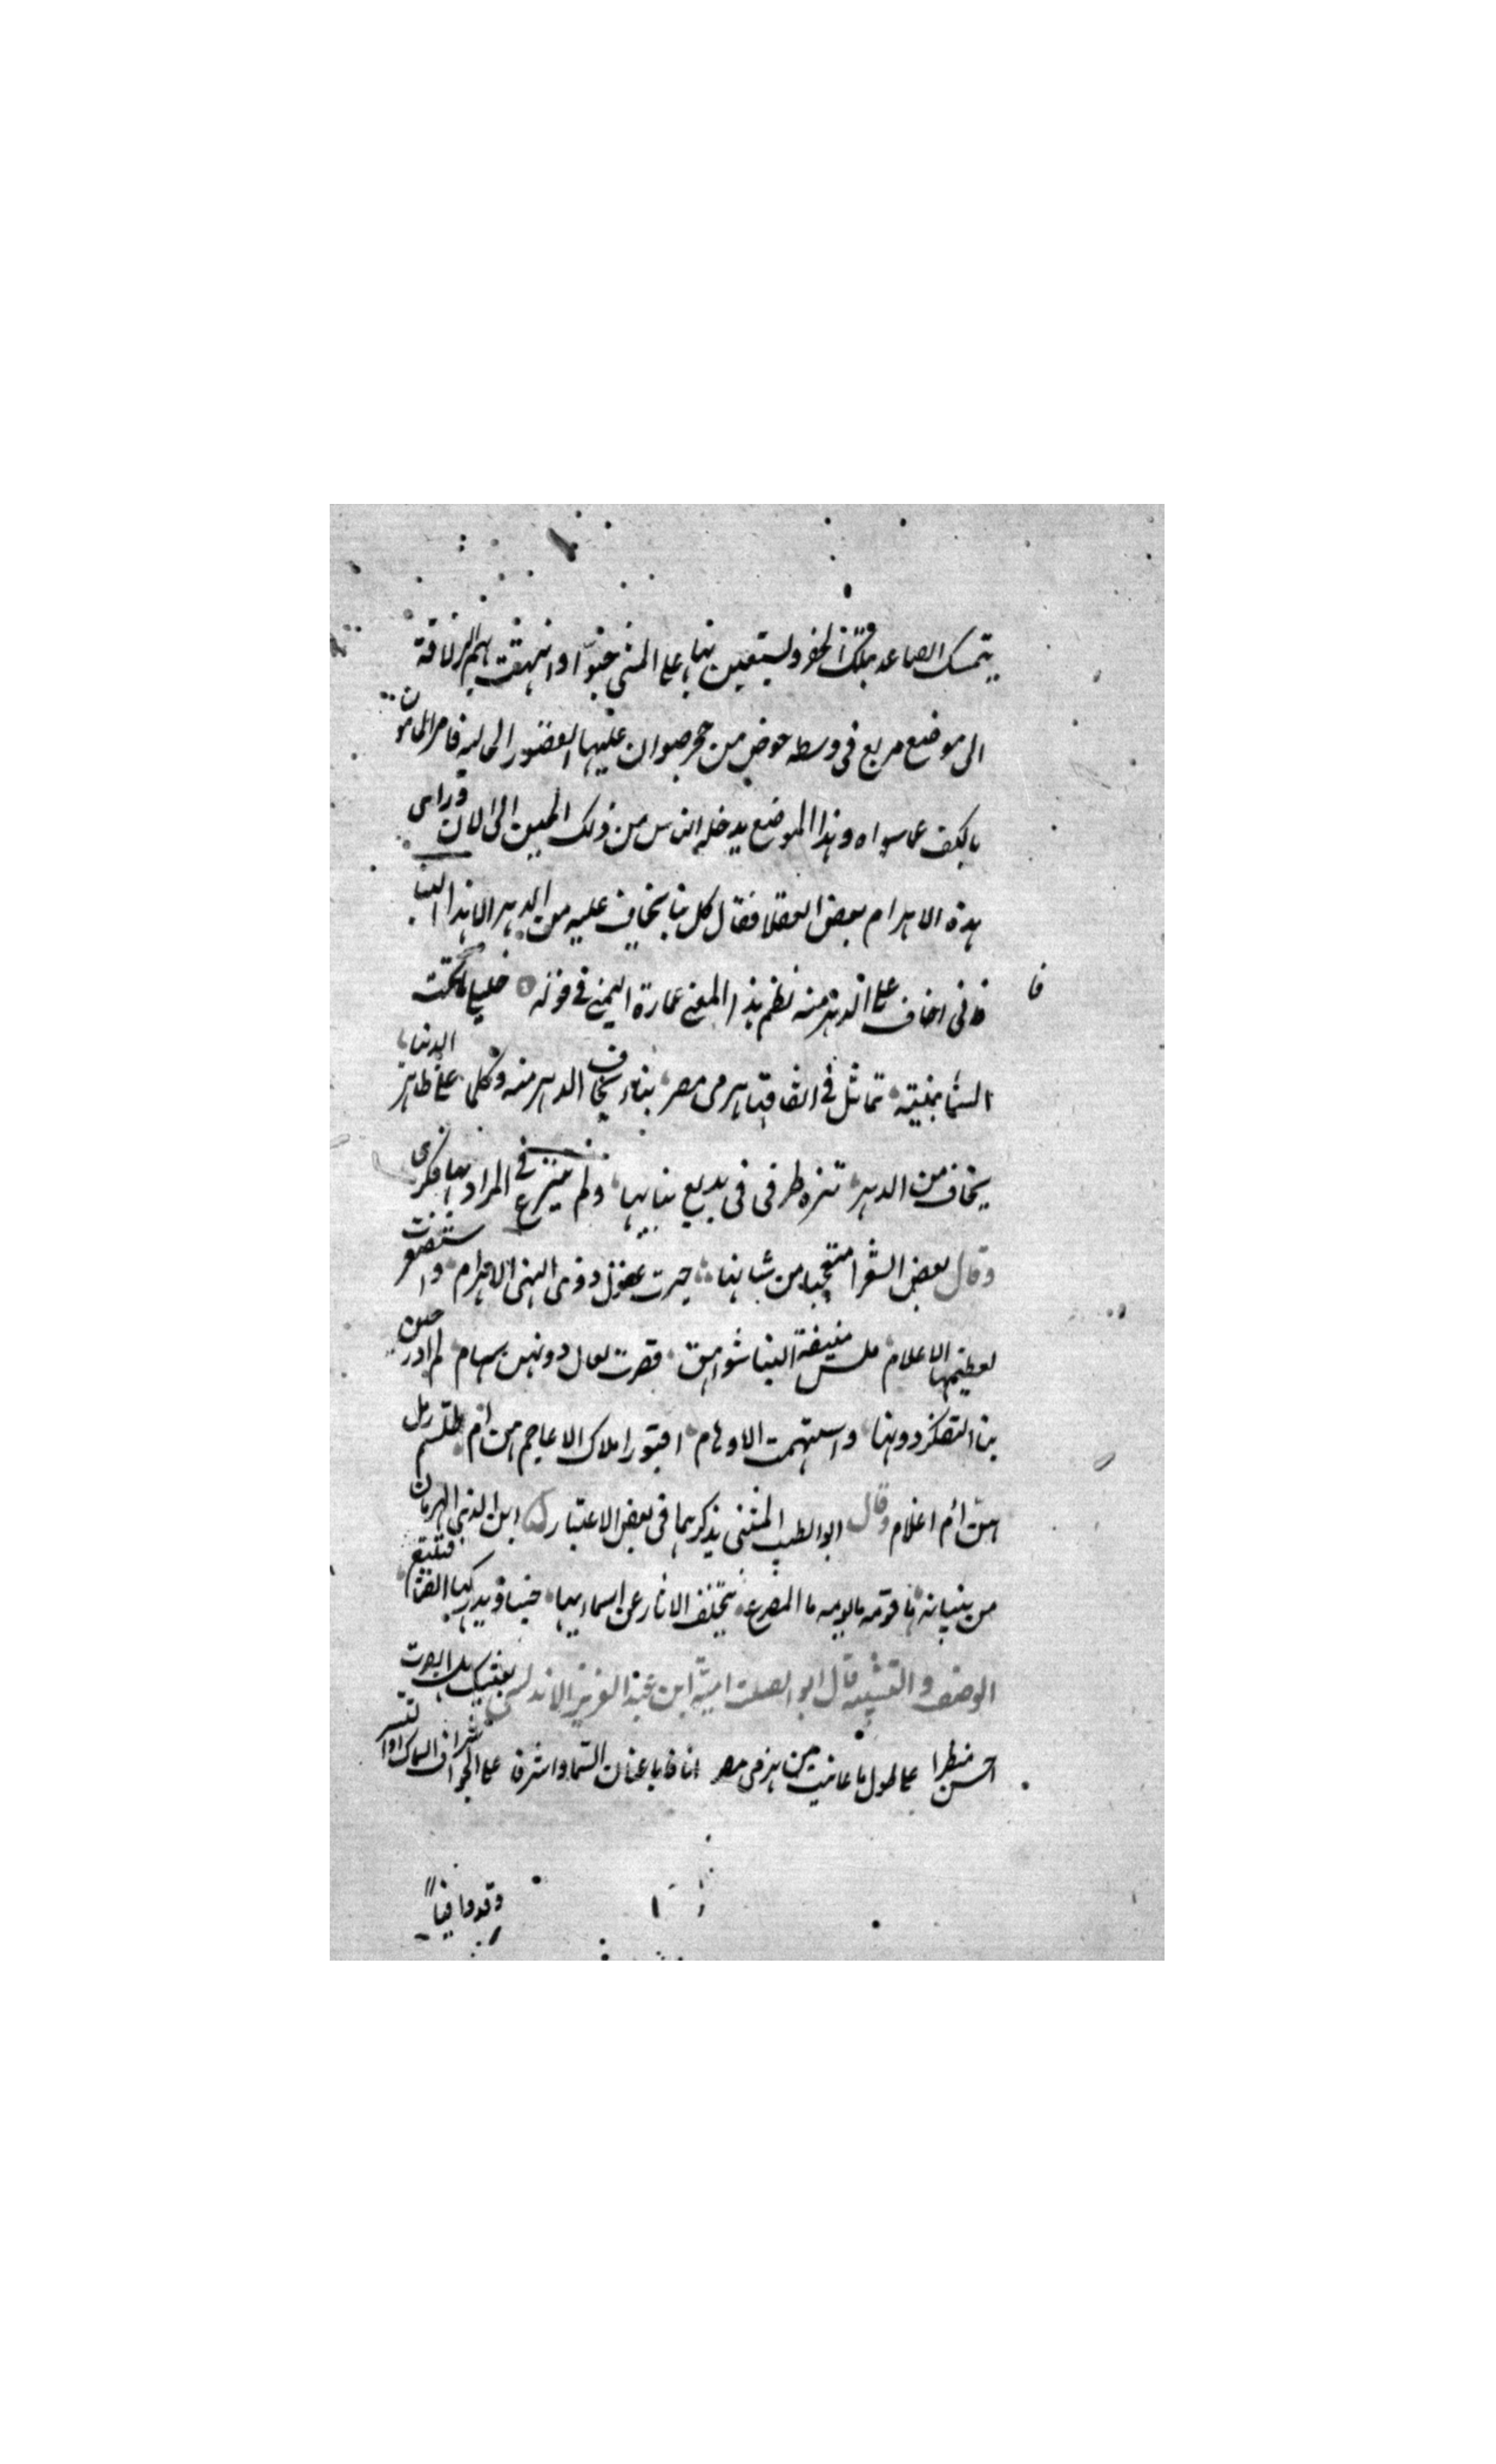 يتمسك الصاعد بتلك الحفر وليستعين بها على المشي حبوا وانتهت بهم الزلاقة
الى موضع مربع في وسطه حوض من حجر صوان عليها العضور الماليه فامر المامون
بالكف عما سواه وهذا الموضع يدخله الناس من ذلك الحين الى الان وراى
هذه الاهرام بعض العقلا فقال كل بنا يخاف عليه من الدهر الا هذا البنا
فا
فاني اخاف على الدهر منه نظم هذا المعنى عمارة اليمني في قوله خليلي ما تحت
السما بنية تماثل في اتقانها هرمى مصر بناء يخاف الدهر منه وكلما على ظاهر الدنيا
يخاف من الدهر تنزه طرفي في بديع بنايها ولم يتنزه في المراد بها فكرى
وقال بعض الشعرا متعجبا من شانها حيرت عقول ذوى النهى الاهرام واستصغرت
لعظيمها الاعلام ملس منيفة البنا شواهق قصرت لعال دونهن سهام لم ادر حين
بنا التفكر دونها واستبهمت الاوهام اقبور املاك الاعاجم هن ام طلسم رمل
هن ام اعلام وقال ابو الطيب المتنبي يذكرهما في بعض الاعتبار اين الذي الهرمان
من بنيانه ما قومه ما يومه ما المصرع تتخلف الاثار عن اسمائهما حينا ويدركها الفنا فتتبع
الوصف والتشبيه قال ابو الصلت امية ابن عبد العزيز الاندلسي بعيشك هل ابصرت
احسن منظرا على طول ما عاينت من هرمى مصر انافا باعنان السما واشرفا على الجو اشراف السماك او النسر
وقد وافيا